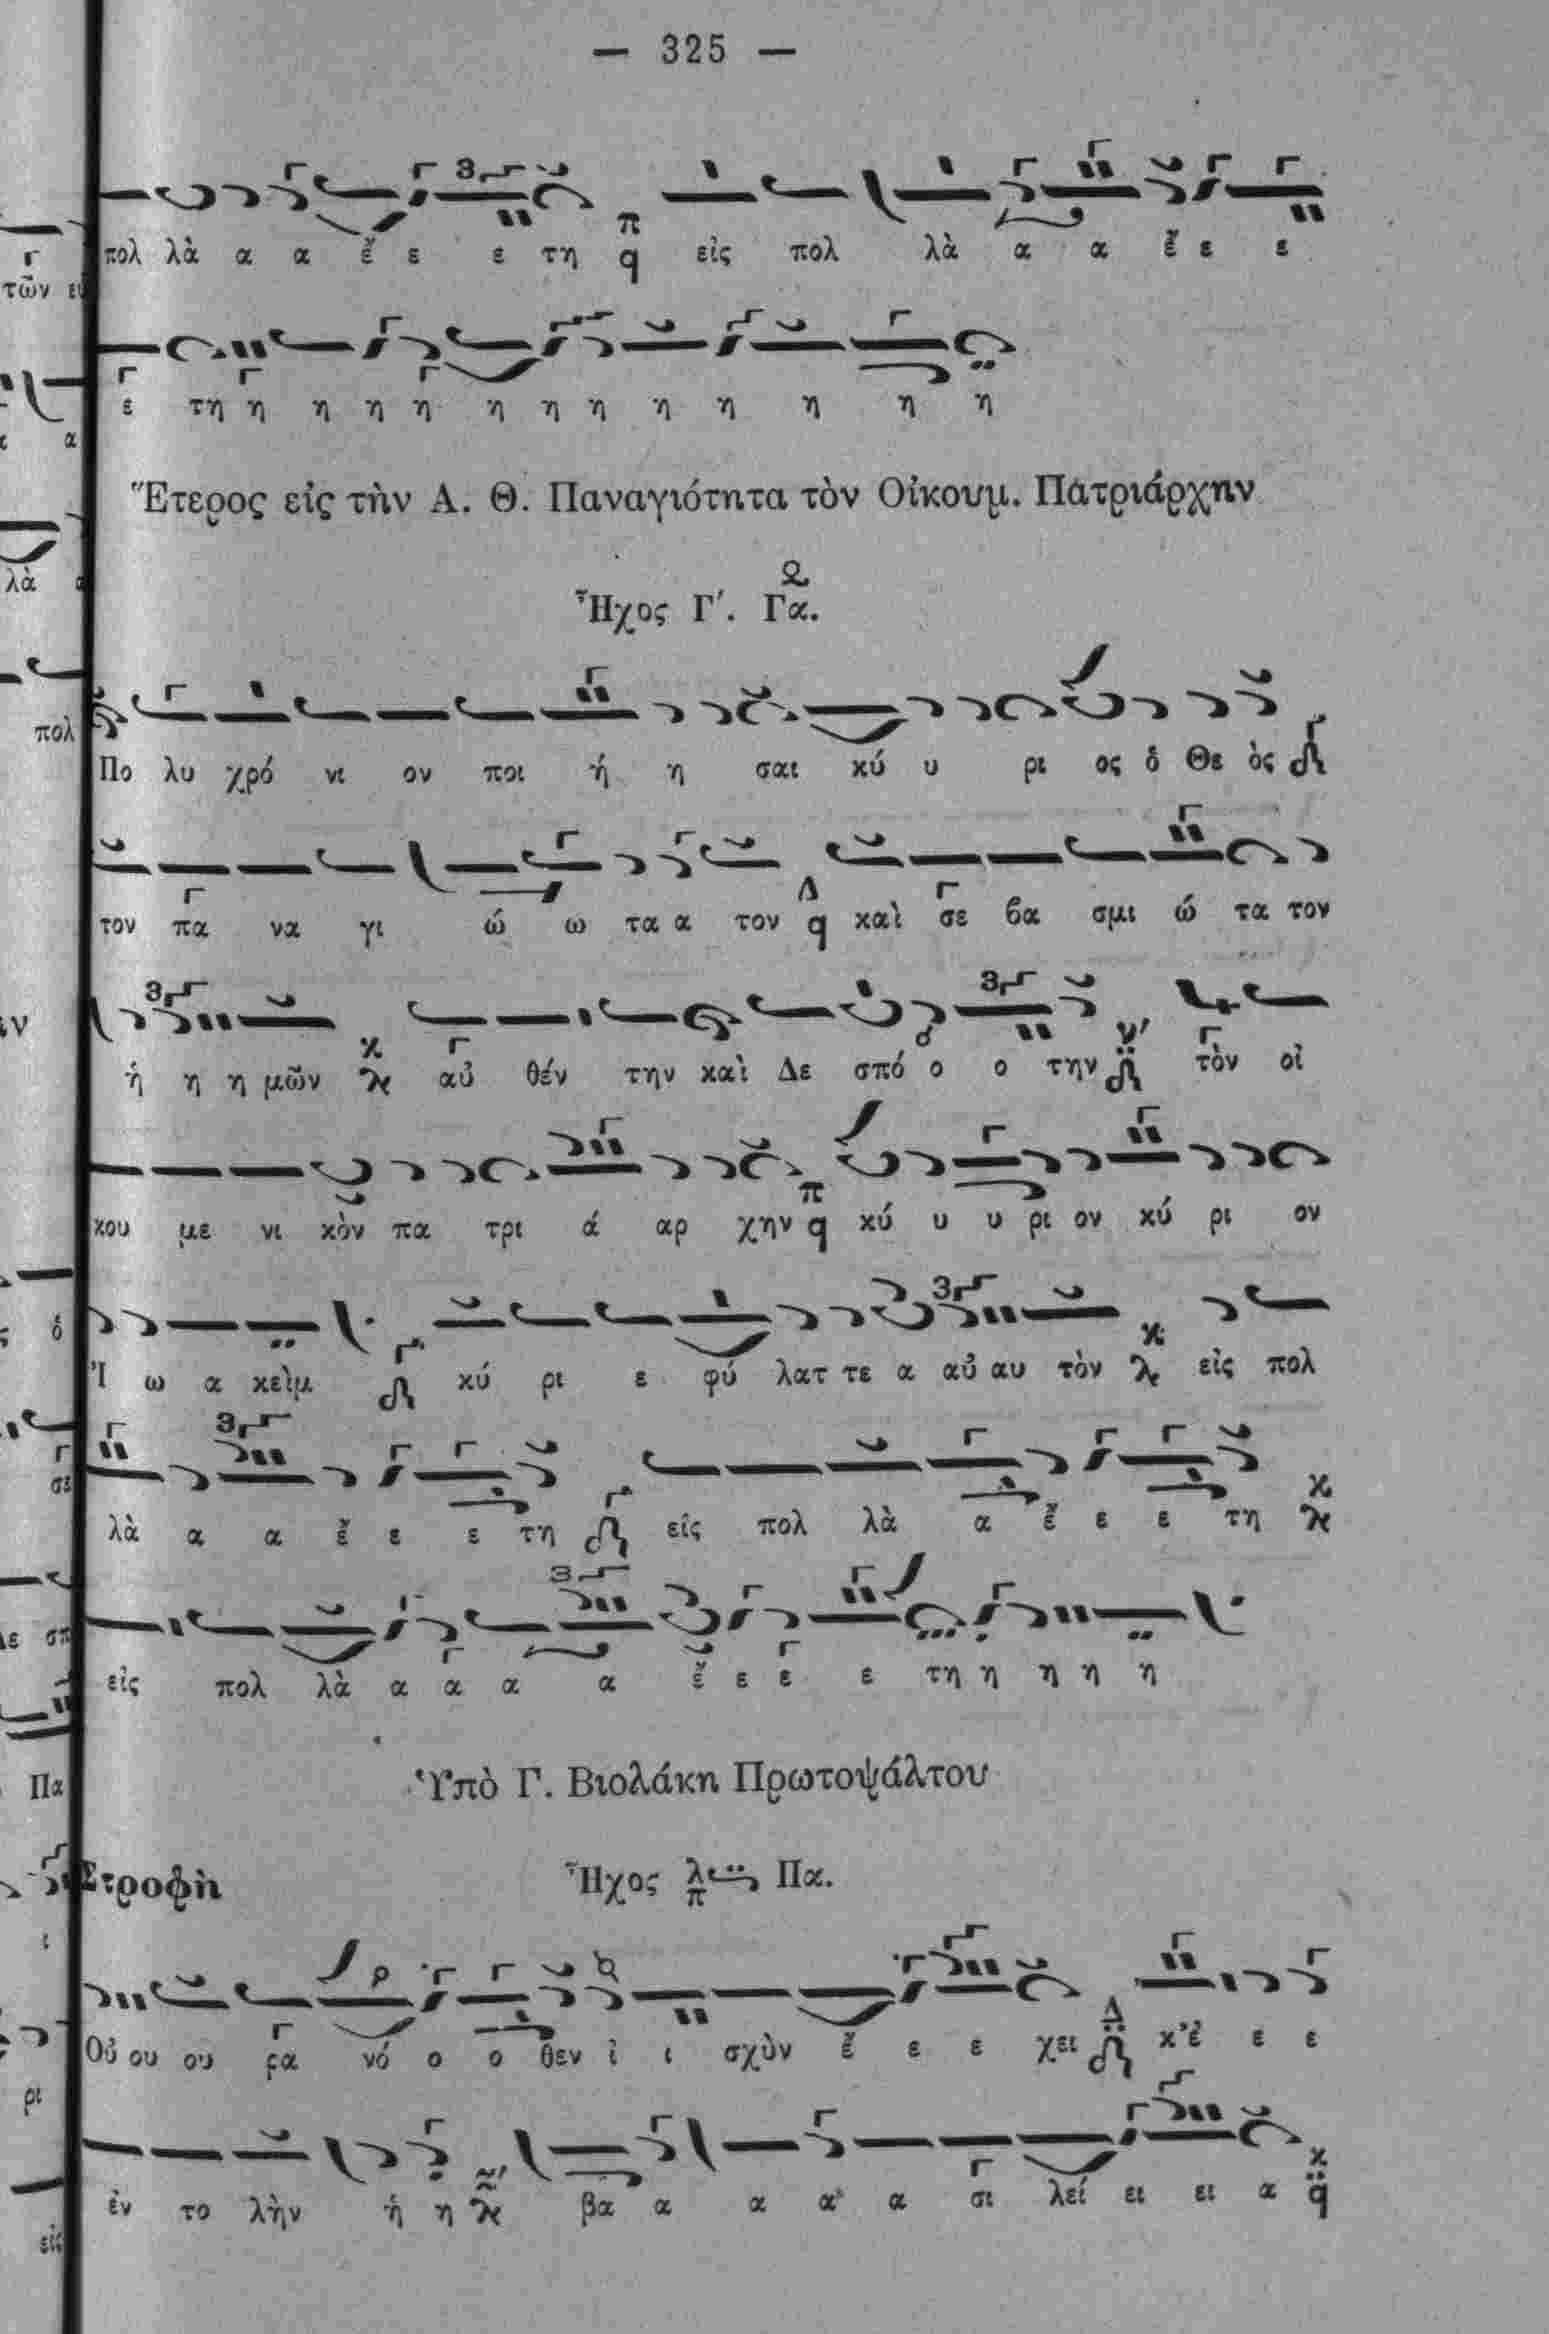 — 325 —
πολ λὰ α α ἔ ε ε τη π q εἰς πολ λὰ α α ἔ ε ε
ε τη η η η η η η η η η η η η
Ἕτερος εἰς τὴν Α. Θ. Παναγιότητα τὸν Οἰκουμ. Πατριάρχην
Ἦχος Γ′. Γα.
Πο λυ χρό νι ον ποι ή η σαι κύ υ ρι ος ὁ Θε ὸς
τον πα να γι ώ ω τα α τον Δ q καὶ σε βα σμι ώ τα τον
ἡ η η μῶν αὐ θέν την καὶ Δε σπό ο ο την τὸν οἰ
κου με νι κὸν πα τρι ά αρ χην π q κύ υ υ ρι ον κύ ρι ον
Ἰ ω α κεὶμ κύ ρι ε φύ λατ τε α αὐ αυ τὸν εἰς πολ
λὰ α α ἔ ε ε τη εἰς πολ λὰ α ἔ ε ε τη
εἰς πολ λὰ α α α α ἔ ε ε ε τη η η η η
Ὑπὸ Γ. Βιολάκη Πρωτοψάλτου
Στροφὴ Ἦχος λ π Πα.
Οὐ ου ου ρα νό ο ο θεν ἰ ι σχὺν ἔ ε ε χει Δ κ’ἐ ε ε
ἐν το λὴν ἡ η βα α α α α σι λεί ει ει α q